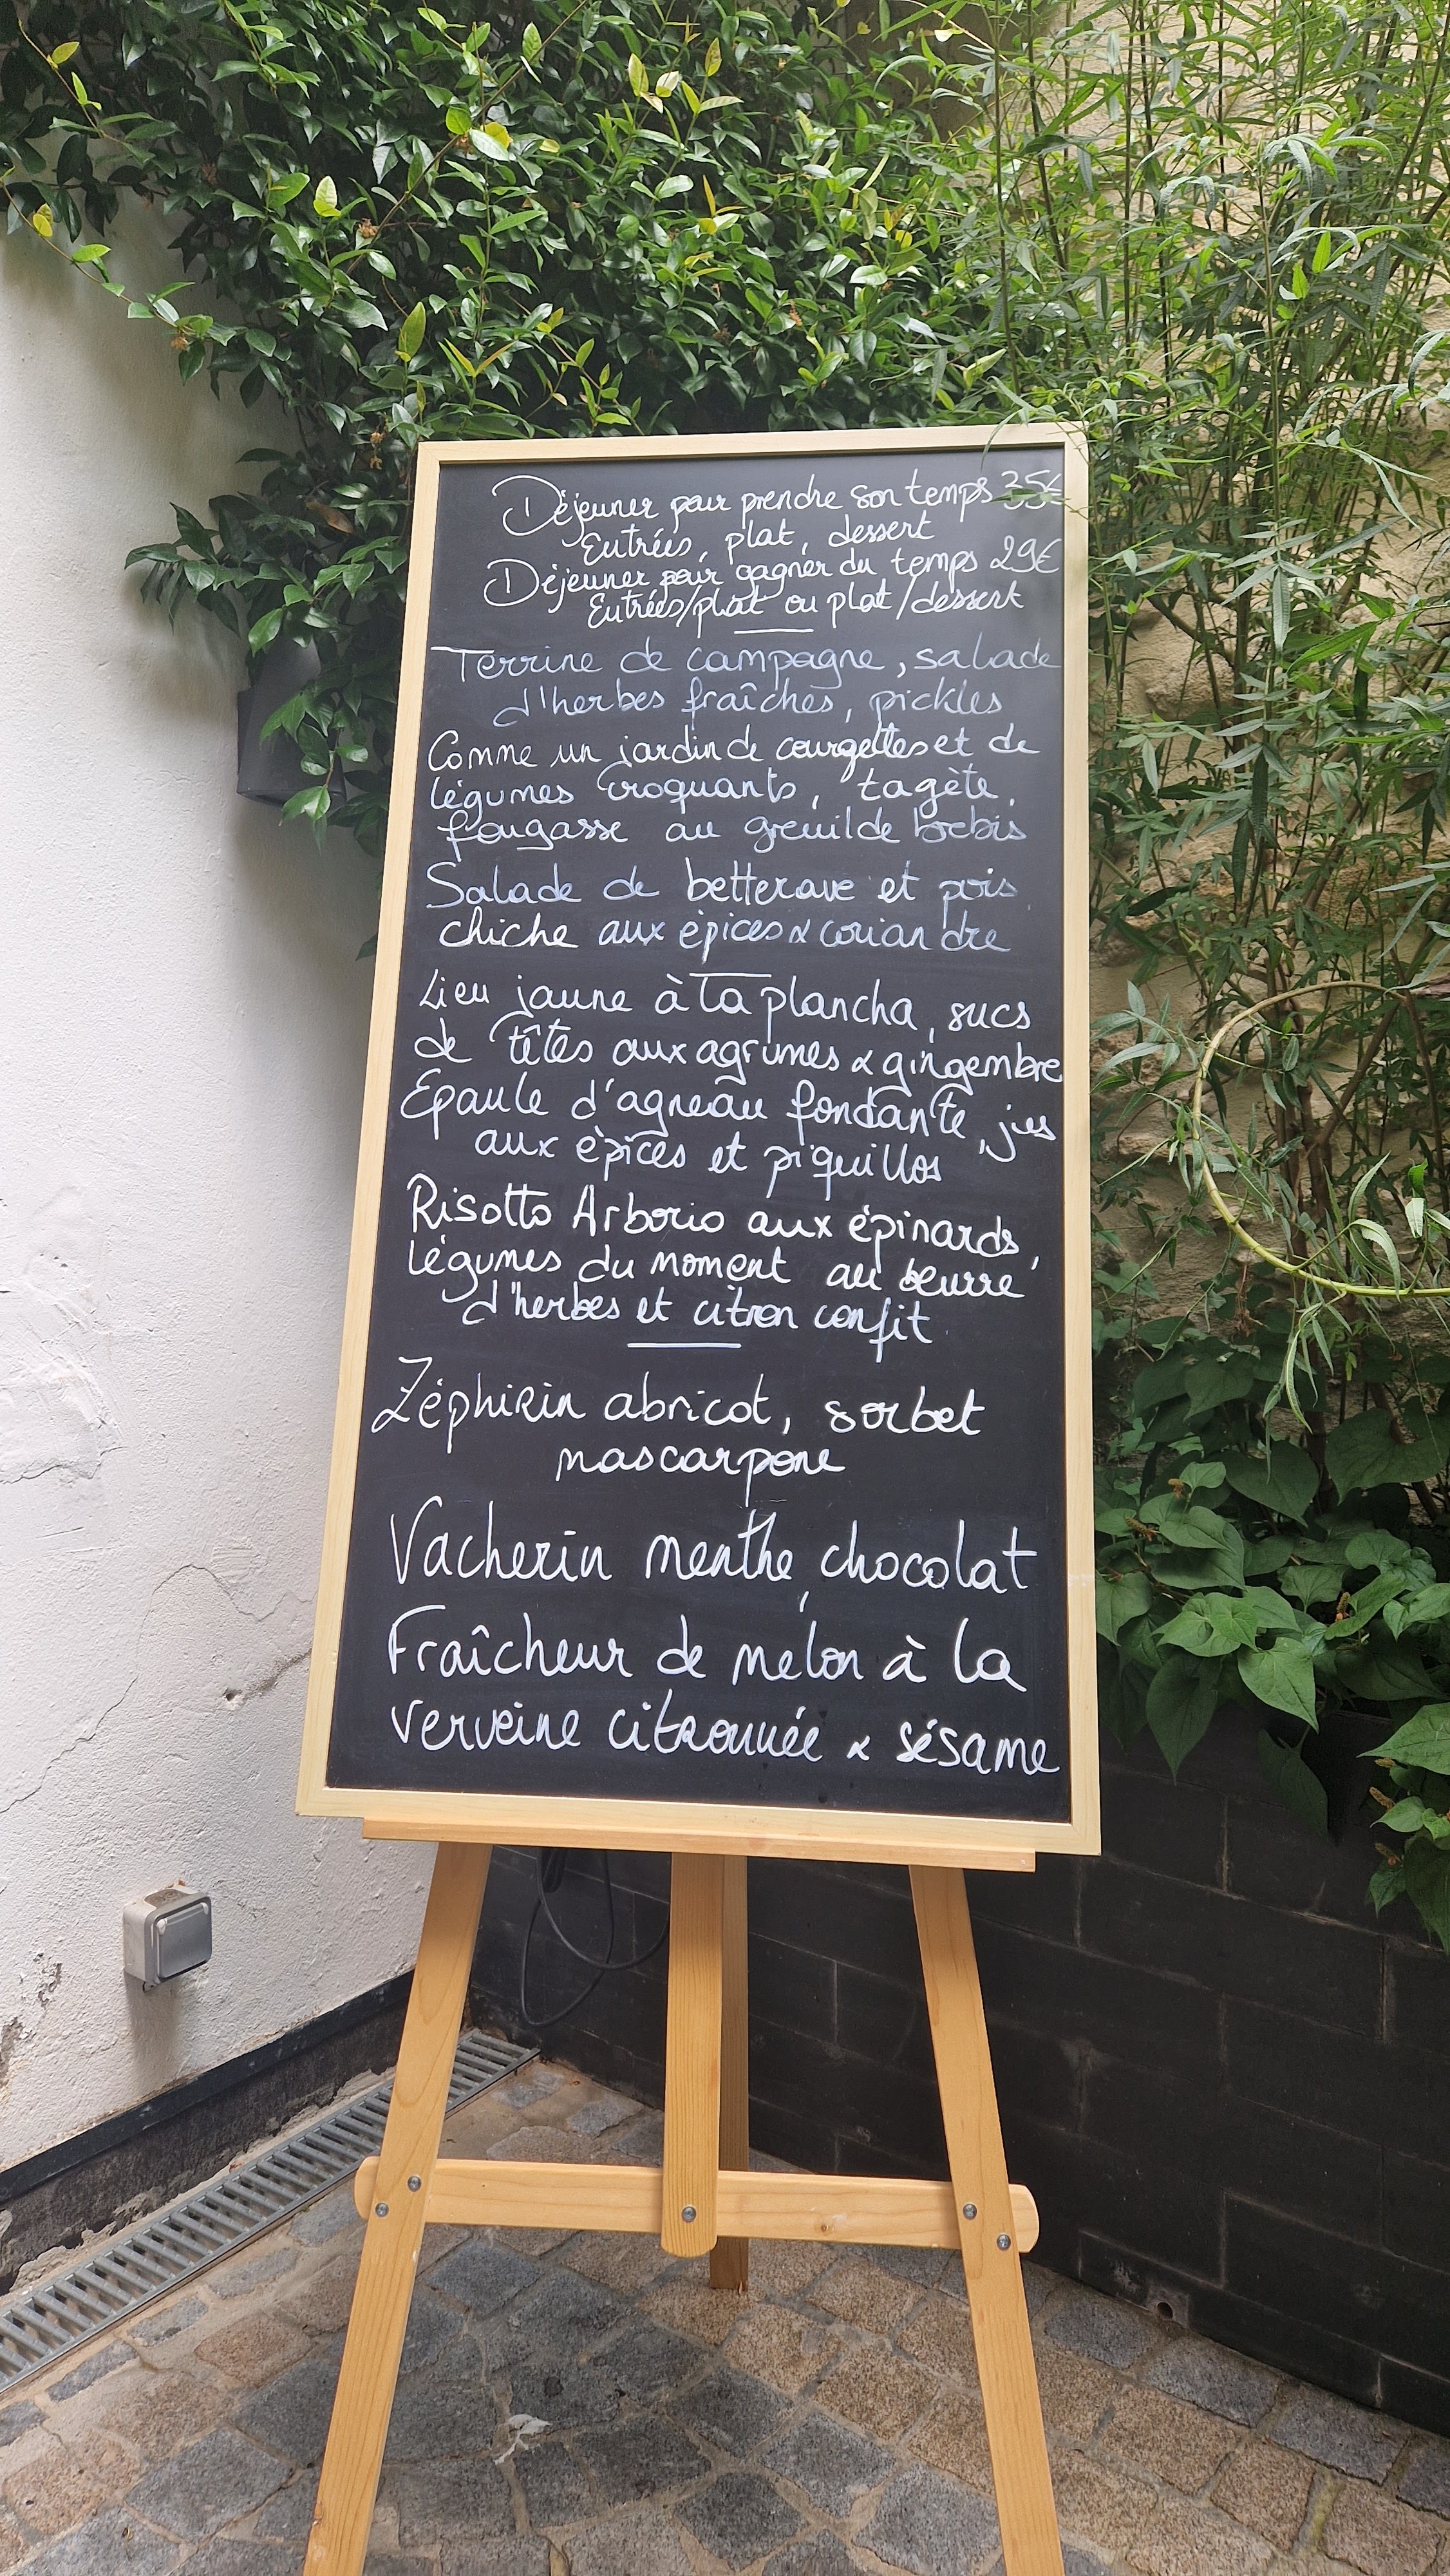 Déjeuner pour prendre son temps 35€
Entrées, plat, dessert
Déjeuner pour gagner du temps 29€
Entrées/plat ou plat/dessert
Terrine de campagne, salade
d'herbes fraîches, pickles
Comme un jardin de courgettes et de
légumes croquants, tagète,
fougasse au greuil de brebis
Salade de betterave et pois
chiche aux épices & coriandre
Lieu jaune à la plancha, sucs
de têtes aux agrumes & gingembre
Epaule d'agneau fondante, jus
aux épices et piquillos
Risotto Arborio aux épinards,
légumes du moment au beurre
d'herbes et citron confit
Zéphirin abricot, sorbet
mascarpone
Vacherin menthe, chocolat
Fraîcheur de melon à la
verveine citronnée & sésame